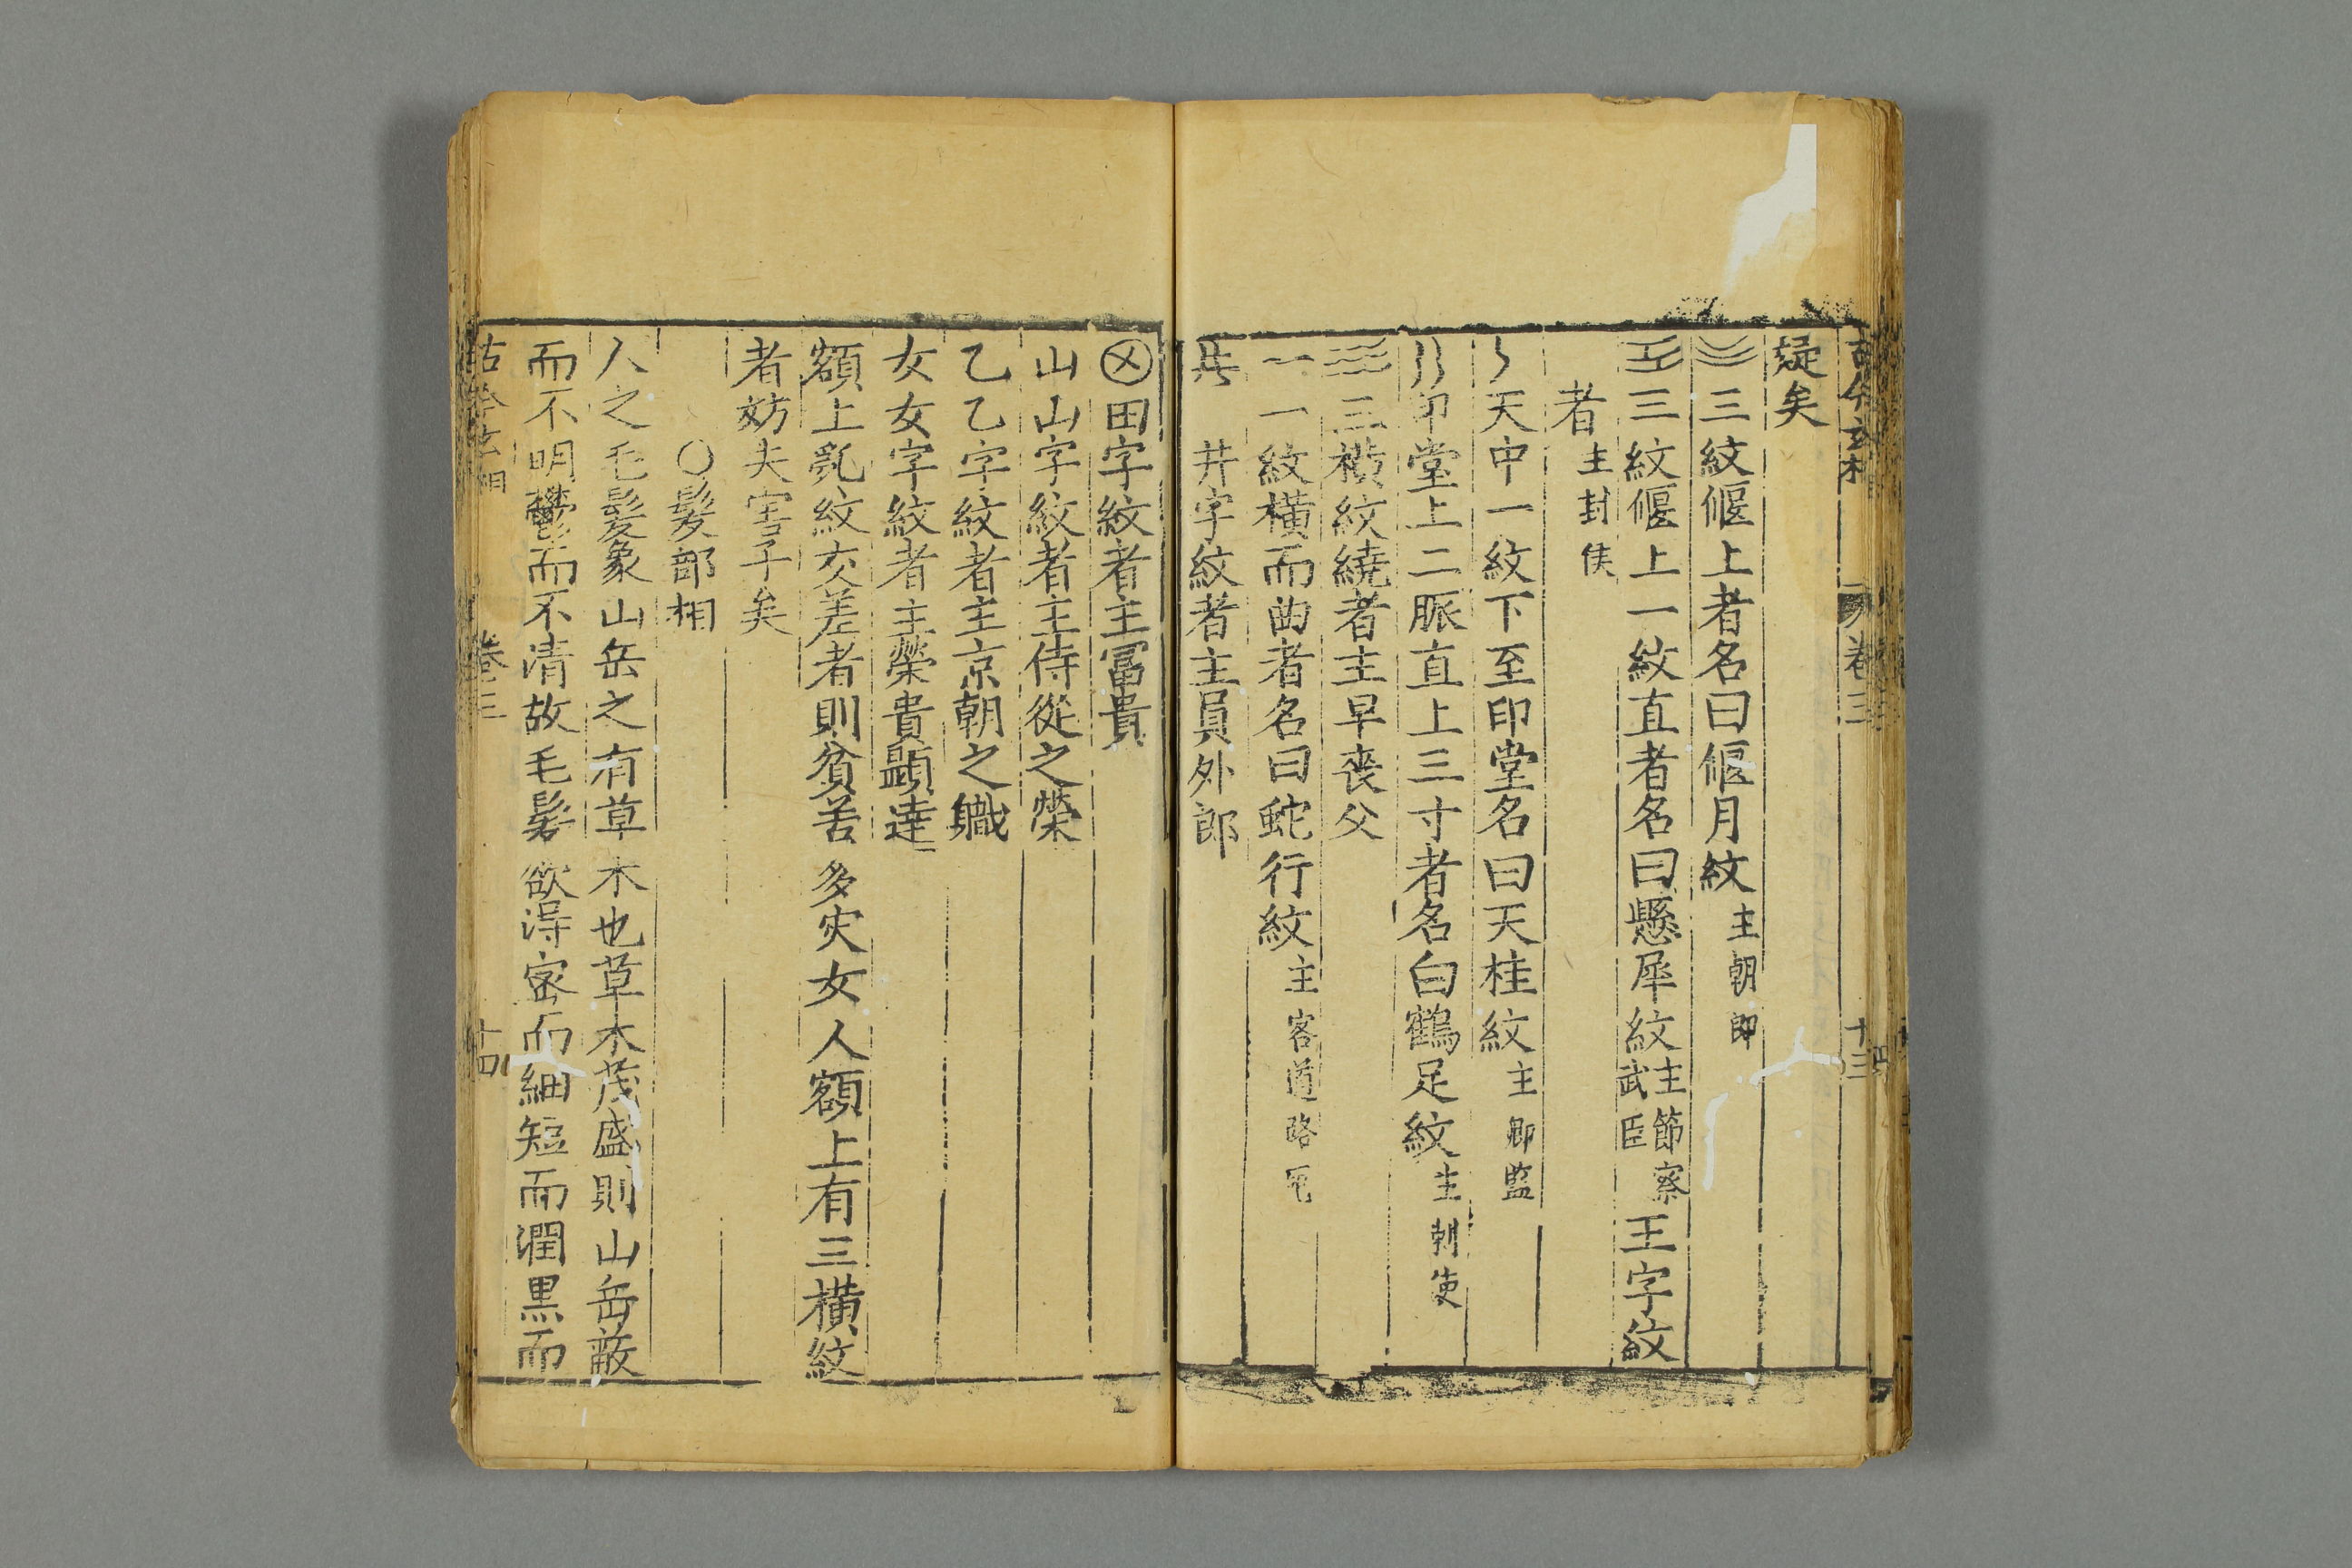 古今玄相 卷三 十三
疑矣
三紋偃上者名曰偃月紋主朝郎
三紋偃上一紋直者名曰懸犀紋主節察武臣王字紋
者主封侯
天中一紋下至印堂名曰天柱紋主卿監
印堂上二脈直上三寸者名白鶴足紋主刺使
三橫紋繞者主早喪父
一紋橫而曲者名曰蛇行紋主客道路死
井字紋者主員外郎
田字紋者主冨貴
山山字紋者主侍從之榮
乙乙字紋者主京朝之軄
女女字紋者主榮貴顯達
額上亂紋交差者則貧苦多灾女人額上有三橫紋
者妨夫害子矣
○髮部相
人之毛髮象山岳之有草木也草木茂盛則山岳蔽
而不明鬱而不清故毛髮欲得密而細短而潤黑而
古今玄相 卷三 十四